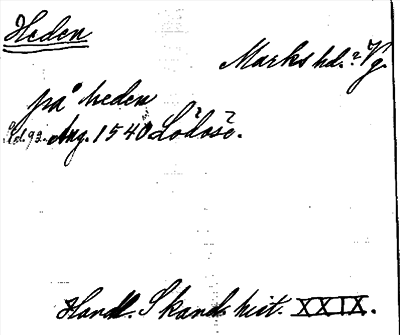 Heden
Marks hd.? Vg.
på heden
sd. 93. Aug. 1540 Lödose.
Handl. Skand. hist. XXIX.